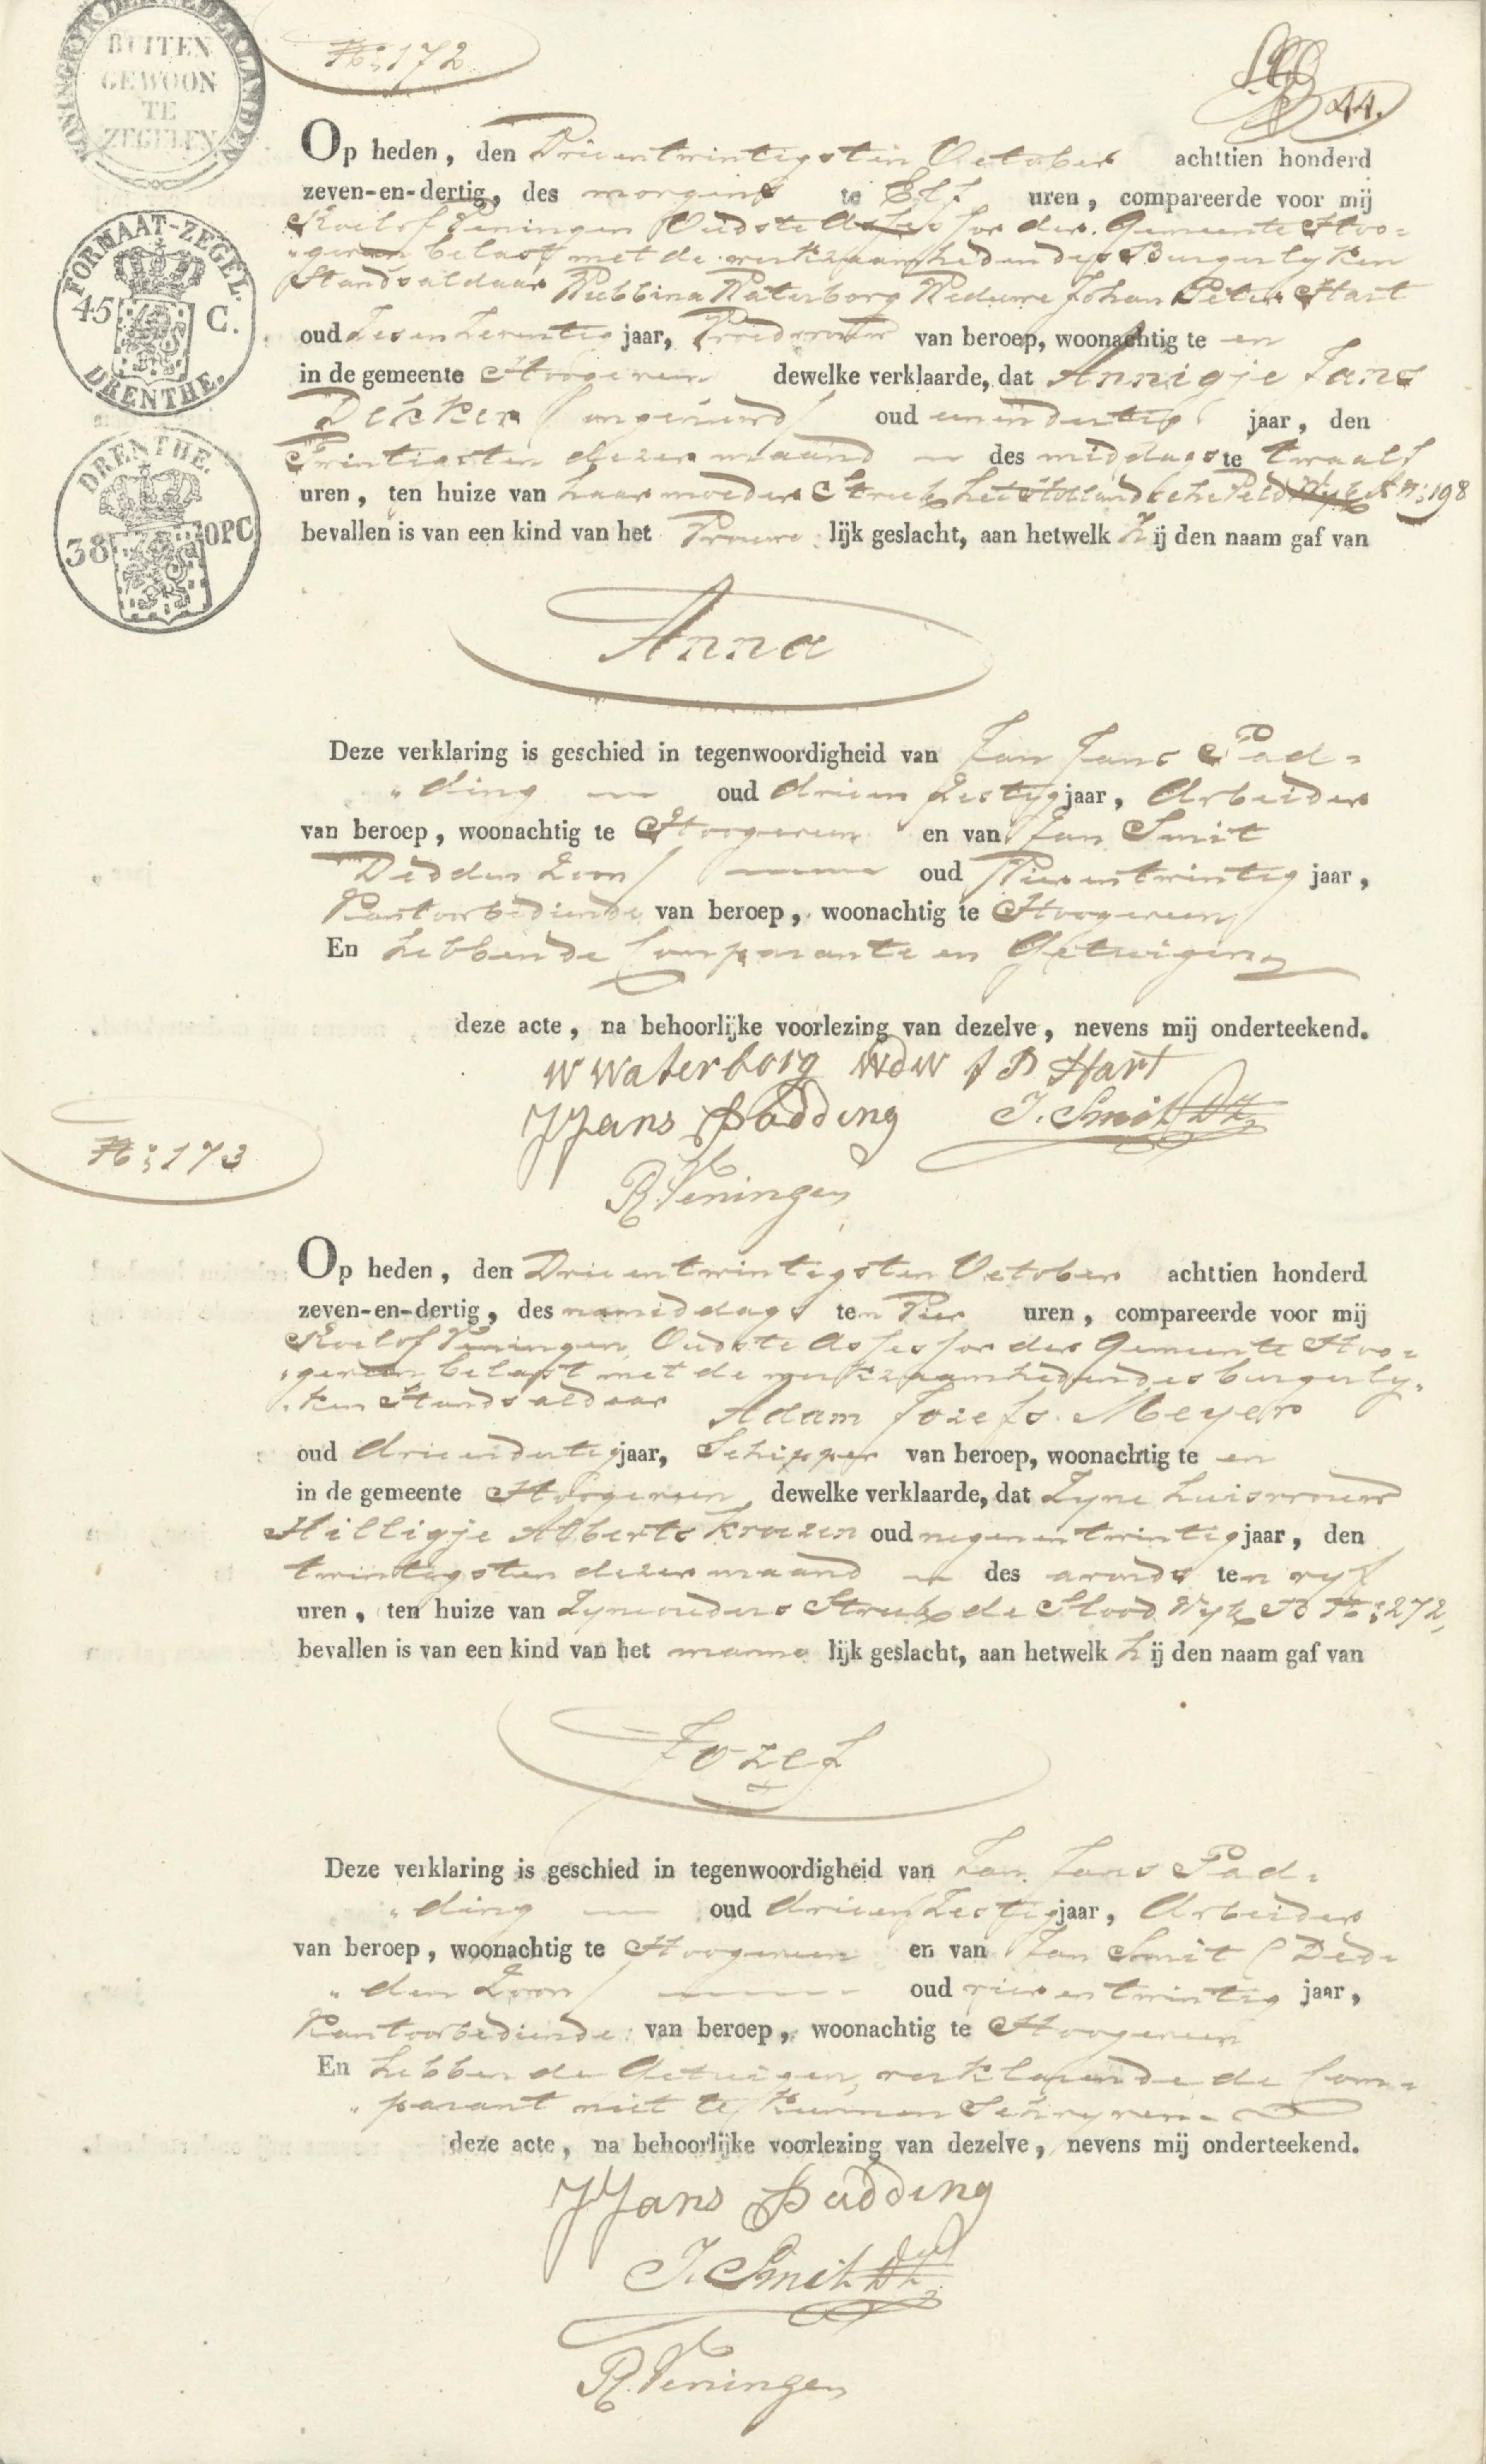 KONINGRYK DER NEDERLANDEN
BUITEN
GEWOON
TE
ZEGELEN
No: 172
44.
Op heden, den Drieentwintigsten October achttien honderd
zeven-en-dertig, des morgens te Elf uren, compareerde voor mij
Roelof Veningen Oudste Assessor der Gemeente Hoo=
"geveen belast met de werkzaamheden des Burgerlyken
Stands aldaar Wubbina Waterborg Weduwe Johan Peter Hart
oud zesenzeventig jaar, Vroedvrouw van beroep, woonachtig te en
in de gemeente Hoogeveen dewelke verklaarde, dat Annigje Jans
Dekker (ongehuwd) oud eenendertig jaar, den
Twintigsten dezer maand des middags te twaalf
uren, ten huize van haar moeder Streek het Hollandsche Veld Wyk A No: 198
bevallen is van een kind van het Vrouwe lijk geslacht, aan hetwelk Zij den naam gaf van
Anna
Deze verklaring is geschied in tegenwoordigheid van Jan Jans Pad=
"ding oud drieen zestig jaar, Arbeider
van beroep, woonachtig te Hoogeveen en van Jan Smit
Dedden Zoon) oud Vierentwintig jaar,
Kantoorbediende van beroep, woonachtig te Hoogeveen
En hebben de Comparante en Getuigen
deze acte, na behoorlijke voorlezing van dezelve, nevens mij onderteekend.
W Waterborg Wdw J P Hart
J Jans Padding J. Smit Dz
R Veningen
FORMAAT-ZEGEL.
45 C.
DRENTHE.
DRENTHE.
38 OPC
No: 173
Op heden, den Drieentwintigsten October achttien honderd
zeven-en-dertig, des namiddags ten Vier uren, compareerde voor mij
Roelof Veningen Oudste Assessor der Gemeente Hoo=
"geveen belast met de werkzaamheden des burgerly=
"ken Stands aldaar Adam Jozefs Meyer
oud drieendertig jaar, Schipper van beroep, woonachtig te en
in de gemeente Hoogeveen dewelke verklaarde, dat Zyne huisvrouw
Hilligje Alberts Kroezen oud negenentwintig jaar, den
twintigsten dezer maand des avonds ten vyf
uren, ten huize van Zyne ouders Streek de Slood Wyk B No: 272,
bevallen is van een kind van het manne lijk geslacht, aan hetwelk hij den naam gaf van
Jozef
Deze verklaring is geschied in tegenwoordigheid van Jan Jans Pad=
"ding oud drieen Zestig jaar, Arbeider
van beroep, woonachtig te Hoogeveen en van Jan Smit (Ded=
"den Zoon) oud vierentwintig jaar,
Kantoorbediende van beroep, woonachtig te Hoogeveen
En hebben de Getuigen, verklarende de Com=
"parant niet te kunnen Schryven
deze acte, na behoorlijke voorlezing van dezelve, nevens mij onderteekend.
J Jans Padding
J. Smit Dz
R Veningen